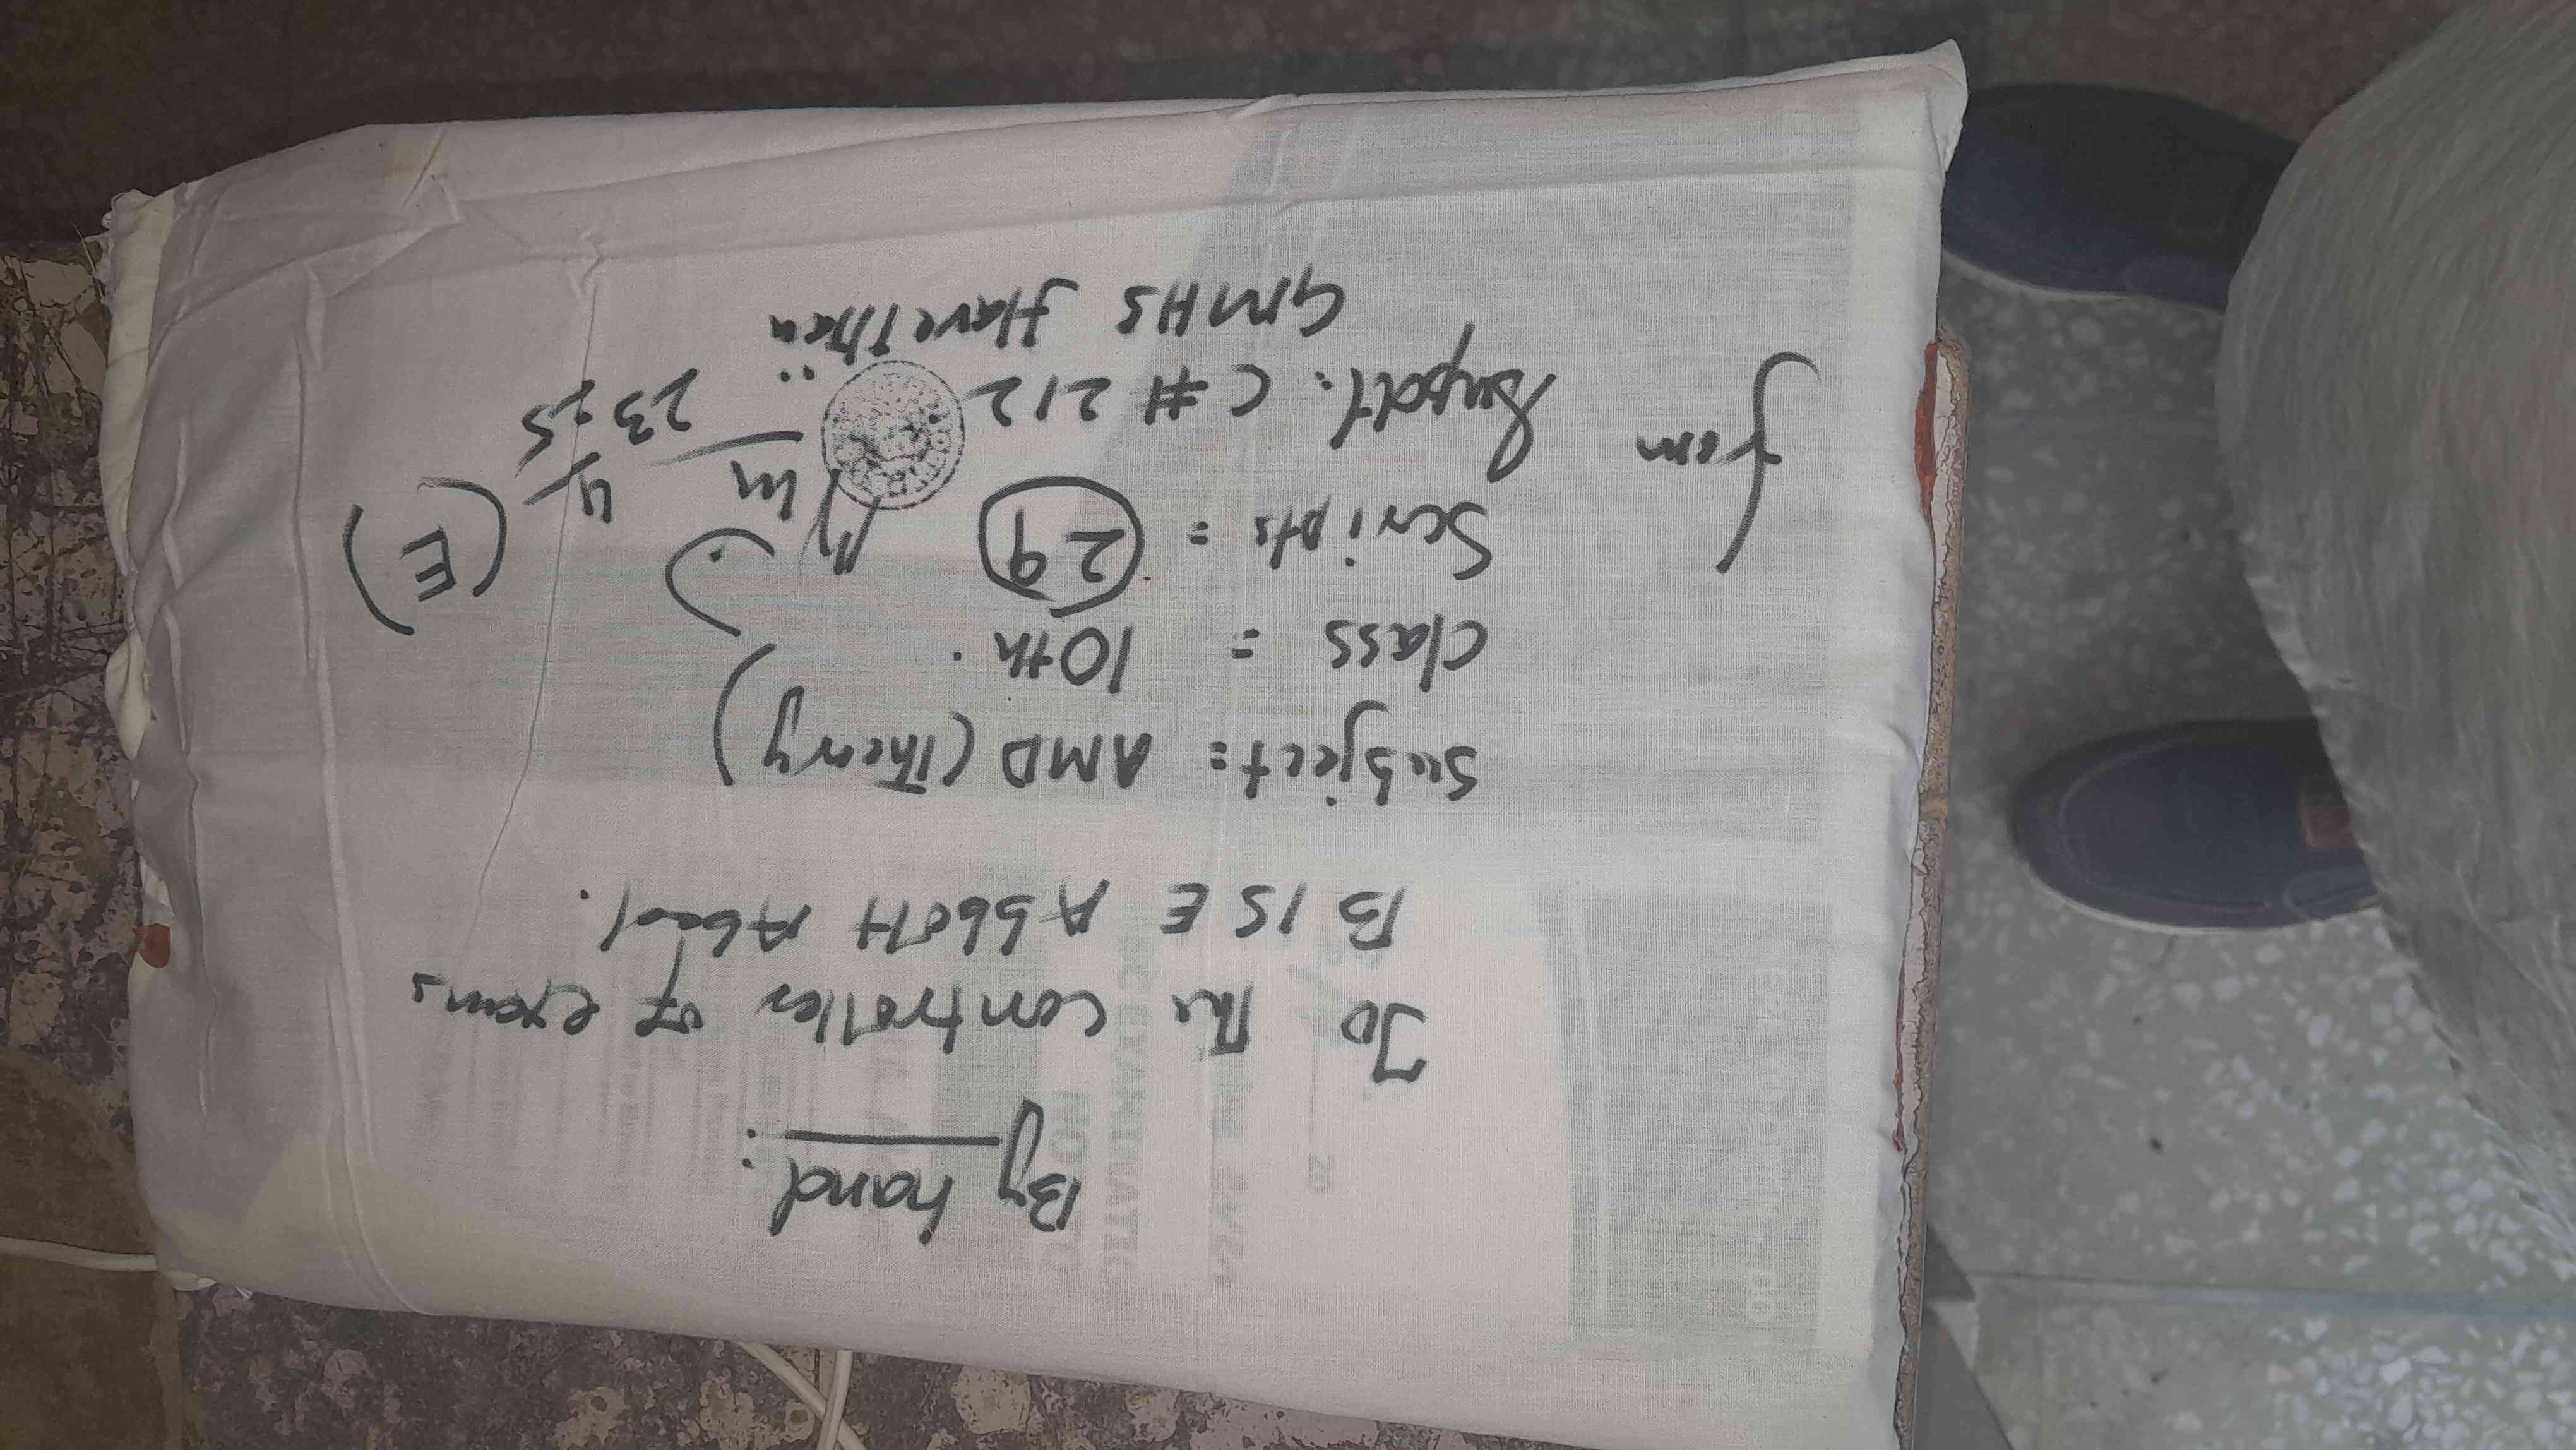 By hand:
To The controller of exams
BISE AbboTT Abad.
Subject = AMD (Theory)
class = 10th.
Scripts = 29
(E)
from
Supdt. C # 212
23 4/25
GMHS